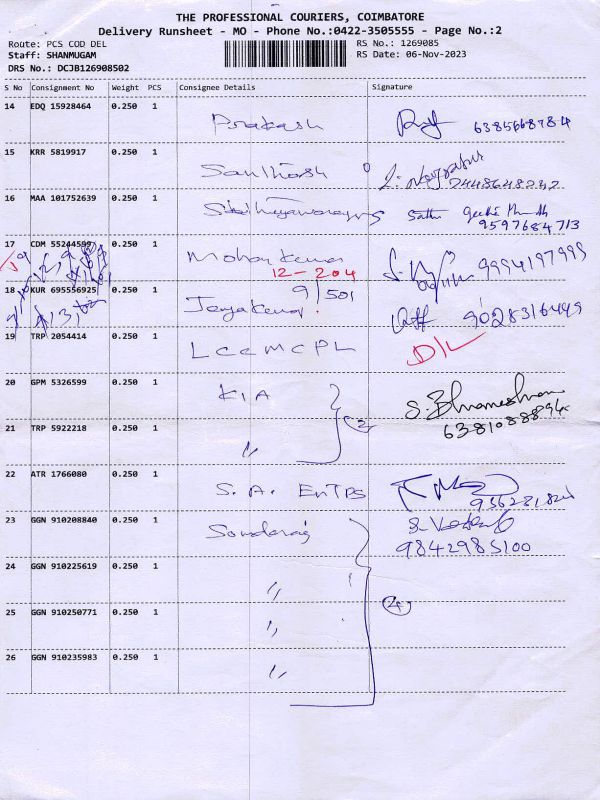 THE PROFESSIONAL COURIERS, COIMBATORE
Delivery Runsheet - MO - Phone No.:0422-3505555 - Page No.:2
Route: PCS COD DEL
RS No.: 1269085
Staff: SHANMUGAM
RS Date: 06-Nov-2023
DRS No.: DCJB126908502
S No Consignment No Weight PCS Consignee Details Signature
14 EDQ 15928464 0.250 1 Prakash
15 KRR 5819917 0.250 1 Santhosh
16 MAA 101752639 0.250 1
9597684713
17 CDM 55244599 0.250 1 Mohan Kumar 9994197999
12-204
18 KUR 695556925 0.250 1 Jeyakumar 9/501 9028316449
19 TRP 2054414 0.250 1 LCCMCPL D/L
20 GPM 5326599 0.250 1 KIA
21 TRP 5922218 0.250 1 〃 2 6381088894
22 ATR 1766080 0.250 1 S. A. EnTPS
23 GGN 910208840 0.250 1 Sondaraj
9842985100
24 GGN 910225619 0.250 1 〃
25 GGN 910250771 0.250 1 〃 4
26 GGN 910235983 0.250 1 〃